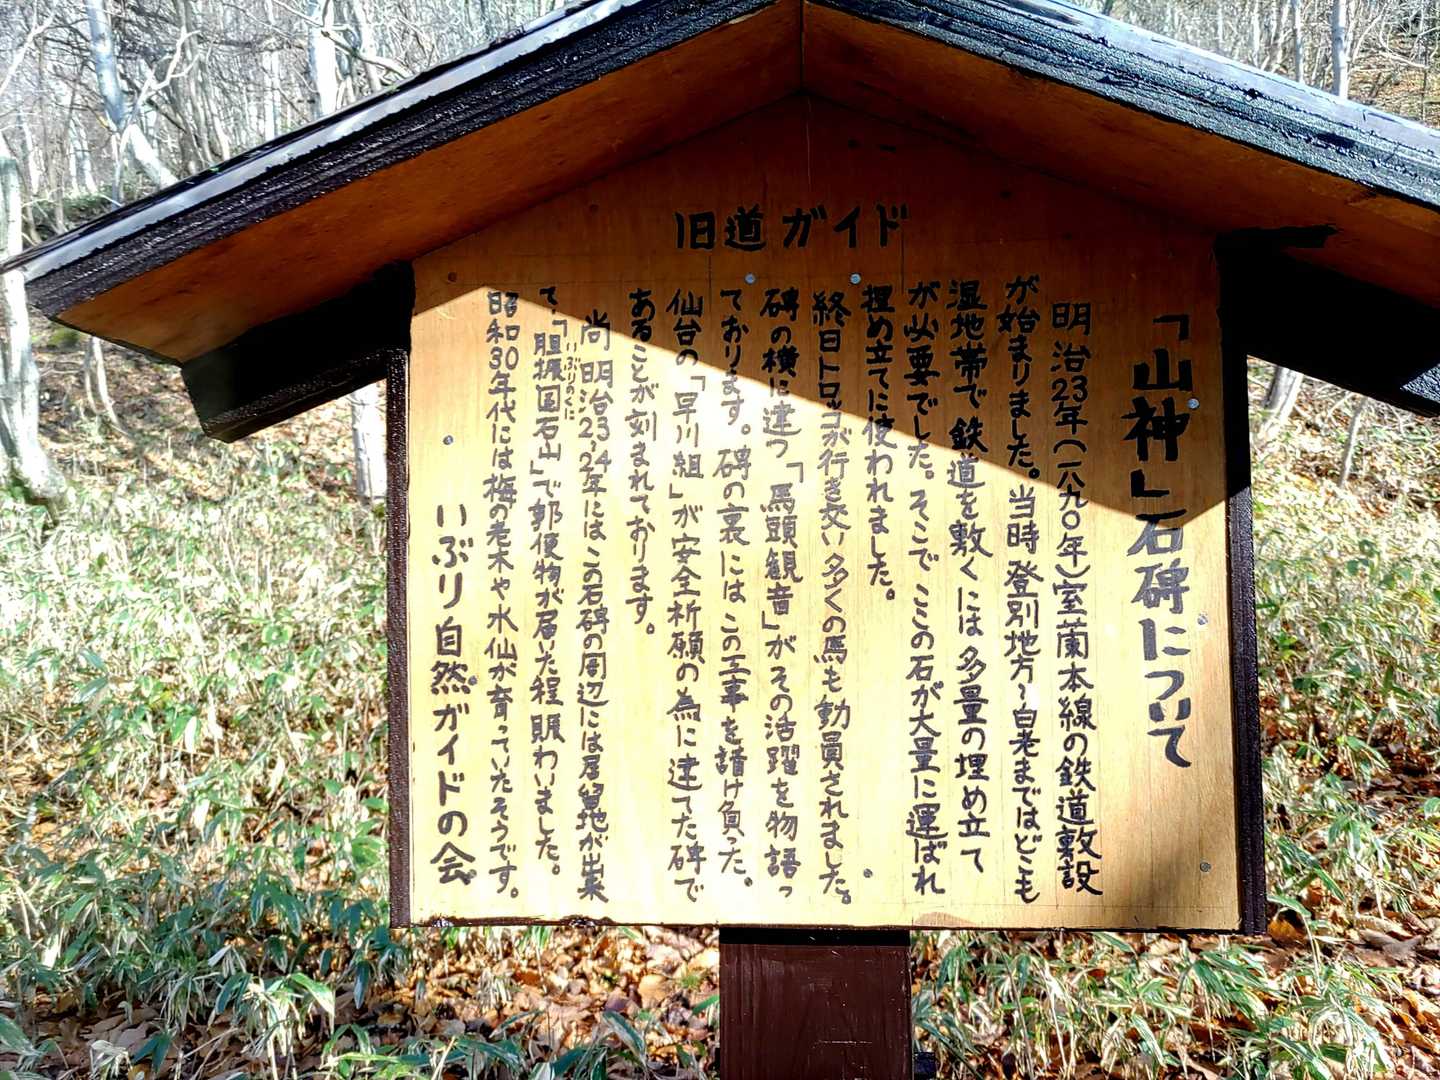 旧道ガイド
「山神」石碑について
明治23年(一八九〇年)室蘭本線の鉄道敷設
が始まりました。当時登別地方～白老まではどこも
湿地帯で鉄道を敷くには多量の埋め立て
が必要でした。そこでここの石が大量に運ばれ
埋め立てに使われました。
終日トロッコが行き交い多くの馬も動員されました。
碑の横に建つ「馬頭観音」がその活躍を物語っ
ております。碑の裏にはこの工事を請け負った。
仙台の「早川組」が安全祈願の為に建てた碑で
あることが刻まれております。
尚明治23,24年にはこの石碑の周辺には居留地が出来
て、「胆振国石山」で郵便物が届いた程賑わいました。
いぶりのくに
昭和30年代には梅の老木や水仙が育っていたそうです。
いぶり自然ガイドの会